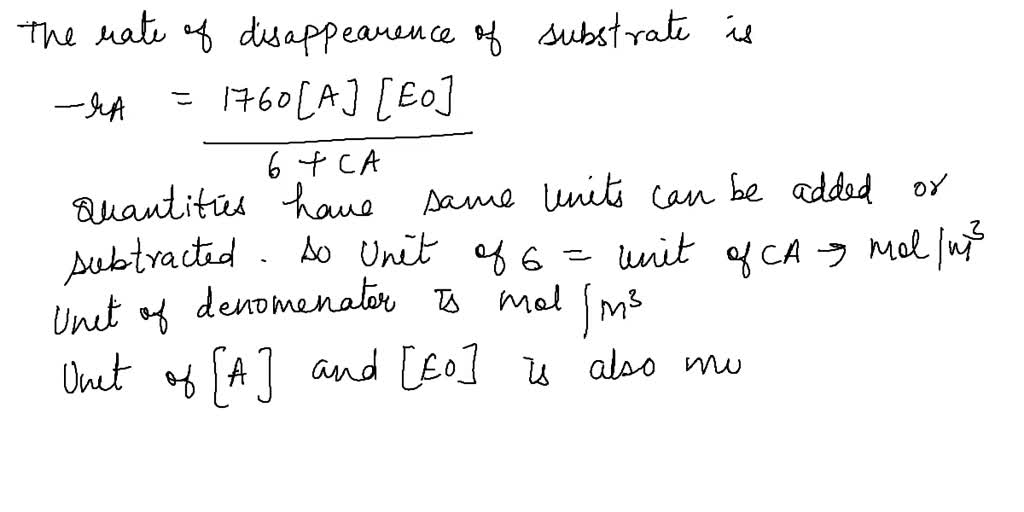 The rate of disappearence of substrate is
-rA = 1760[A][E0]
6 + CA
Quantities have same units can be added or
subtracted. So Unit of 6 = unit of CA → mol/m³
Unit of denomenator is mol/m³
Unit of [A] and [E0] is also mo